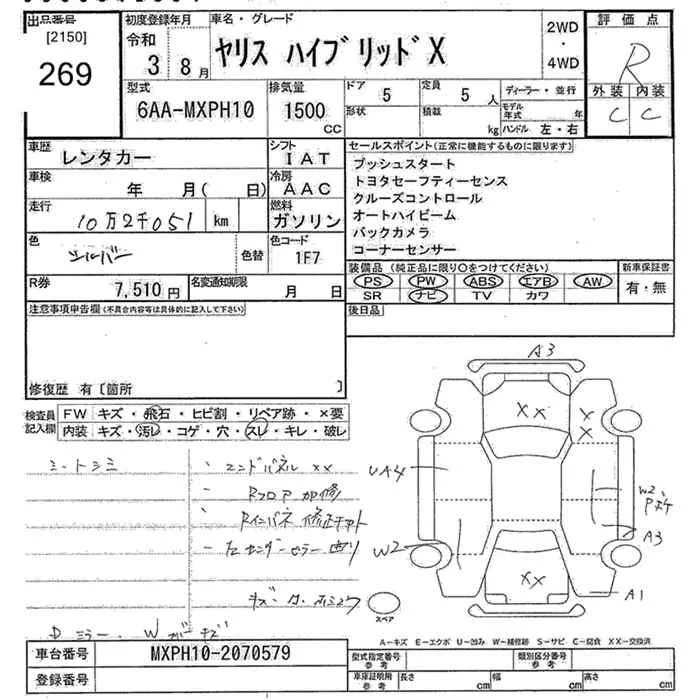 出品番号 [2150] 269
初度登録年月 令和 3年 8月
車名・グレード ヤリス ハイブリッドX
2WD・4WD
評価点 R
外装 C 内装 C
型式 6AA-MXPH10
排気量 1500 CC
ドア 5 定員 5人
形状 積載 kg
ディーラー・並行
モデル年式 年
ハンドル 左・右
車歴 レンタカー
シフト IAT
車検 年 月( 日)
冷房 AAC
走行 10万2千051 km
燃料 ガソリン
色 シルバー 色替
色コード 1F7
R券 7,510円
名変通知期限 月 日
セールスポイント(正常に機能するものに限ります)
プッシュスタート
トヨタセーフティーセンス
クルーズコントロール
オートハイビーム
バックカメラ
コーナーセンサー
装備品(純正品に限り○をつけてください)
PS PW ABS エアB AW
SR ナビ TV カワ
新車保証書 有・無
注意事項申告欄(不具合内容等は具体的に記入して下さい)
後日品
修復歴 有〔箇所 〕
検査員記入欄
FW キズ・飛石・ヒビ割・リペア跡・×要
内装 キズ・汚レ・コゲ・穴・スレ・キレ・破レ
シートシミ
・エンドパネル XX
・Rフロア 加修
・Rインパネ 修正
Dミラー・Wガキズ
A3
XX
XX
UA4
W2
W2
A3
XX
A1
スペア
A-キズ E-エクボ U-凹み W-補修跡 S-サビ C-腐食 XX-交換済
車台番号 MXPH10-2070579
登録番号
型式指定番号 参考
類別区分番号 参考
車庫証明用 参考 長さ cm 幅 cm 高さ cm